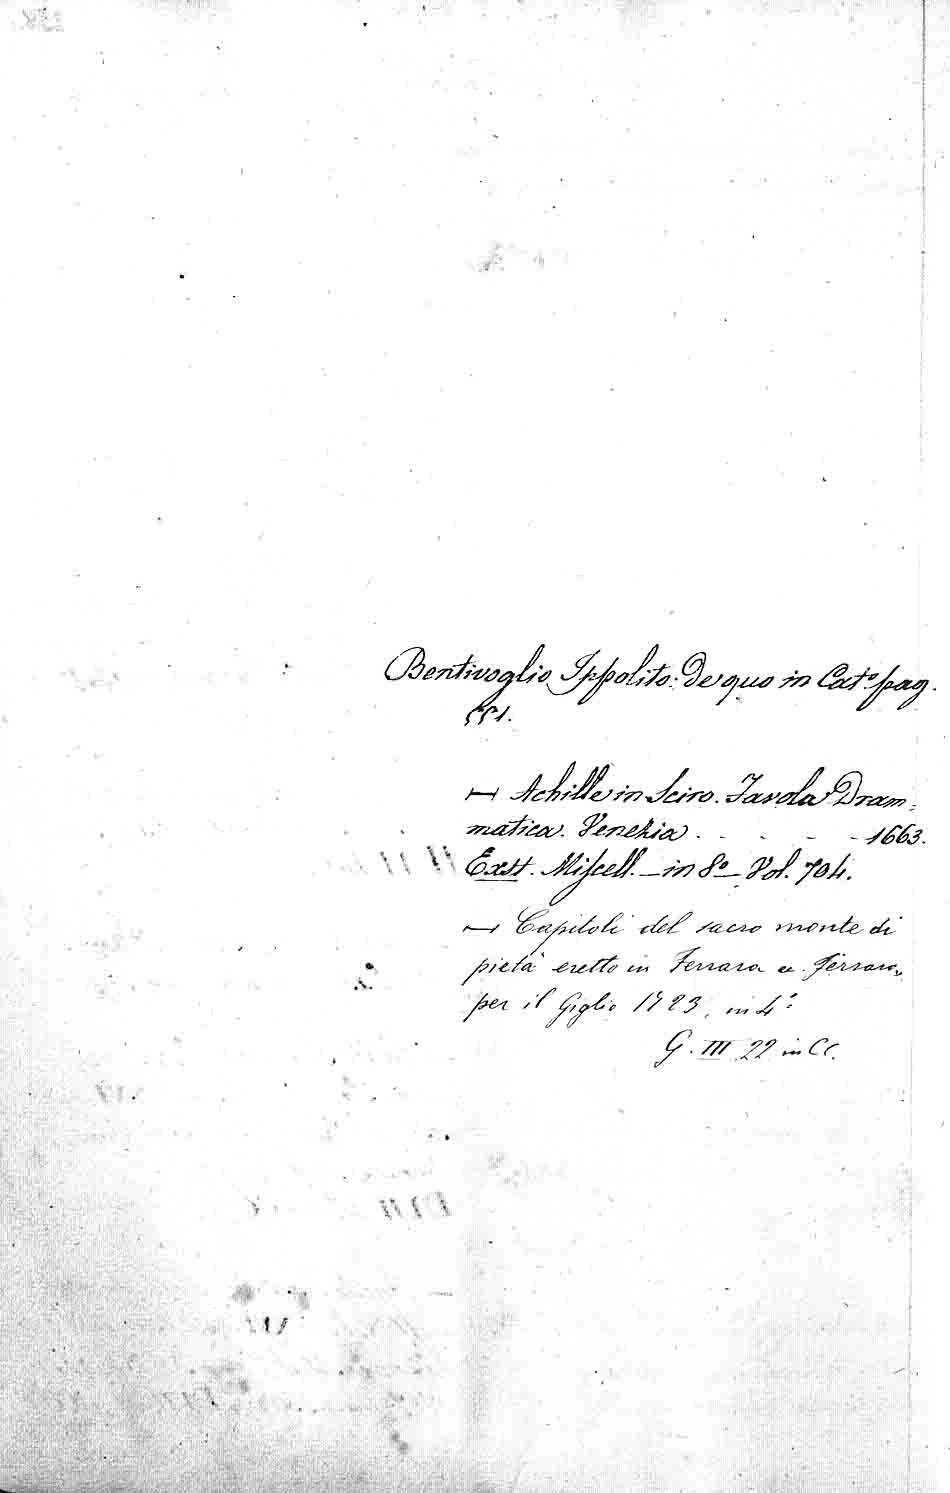 Bentivoglio Ippolito: De quo in Cat.º pag.
551.
⟼ Achille in Sciro. Favola Dram-
matica. Venezia . - - - - 1663.
Exst. Miscell. — in 8º — Vol. 704.
⟼ Capitoli del sacro monte di
pietà eretto in Ferrara &. Ferrara,
per il Giglio 1723, in 4º:
G. III 22 in CC.